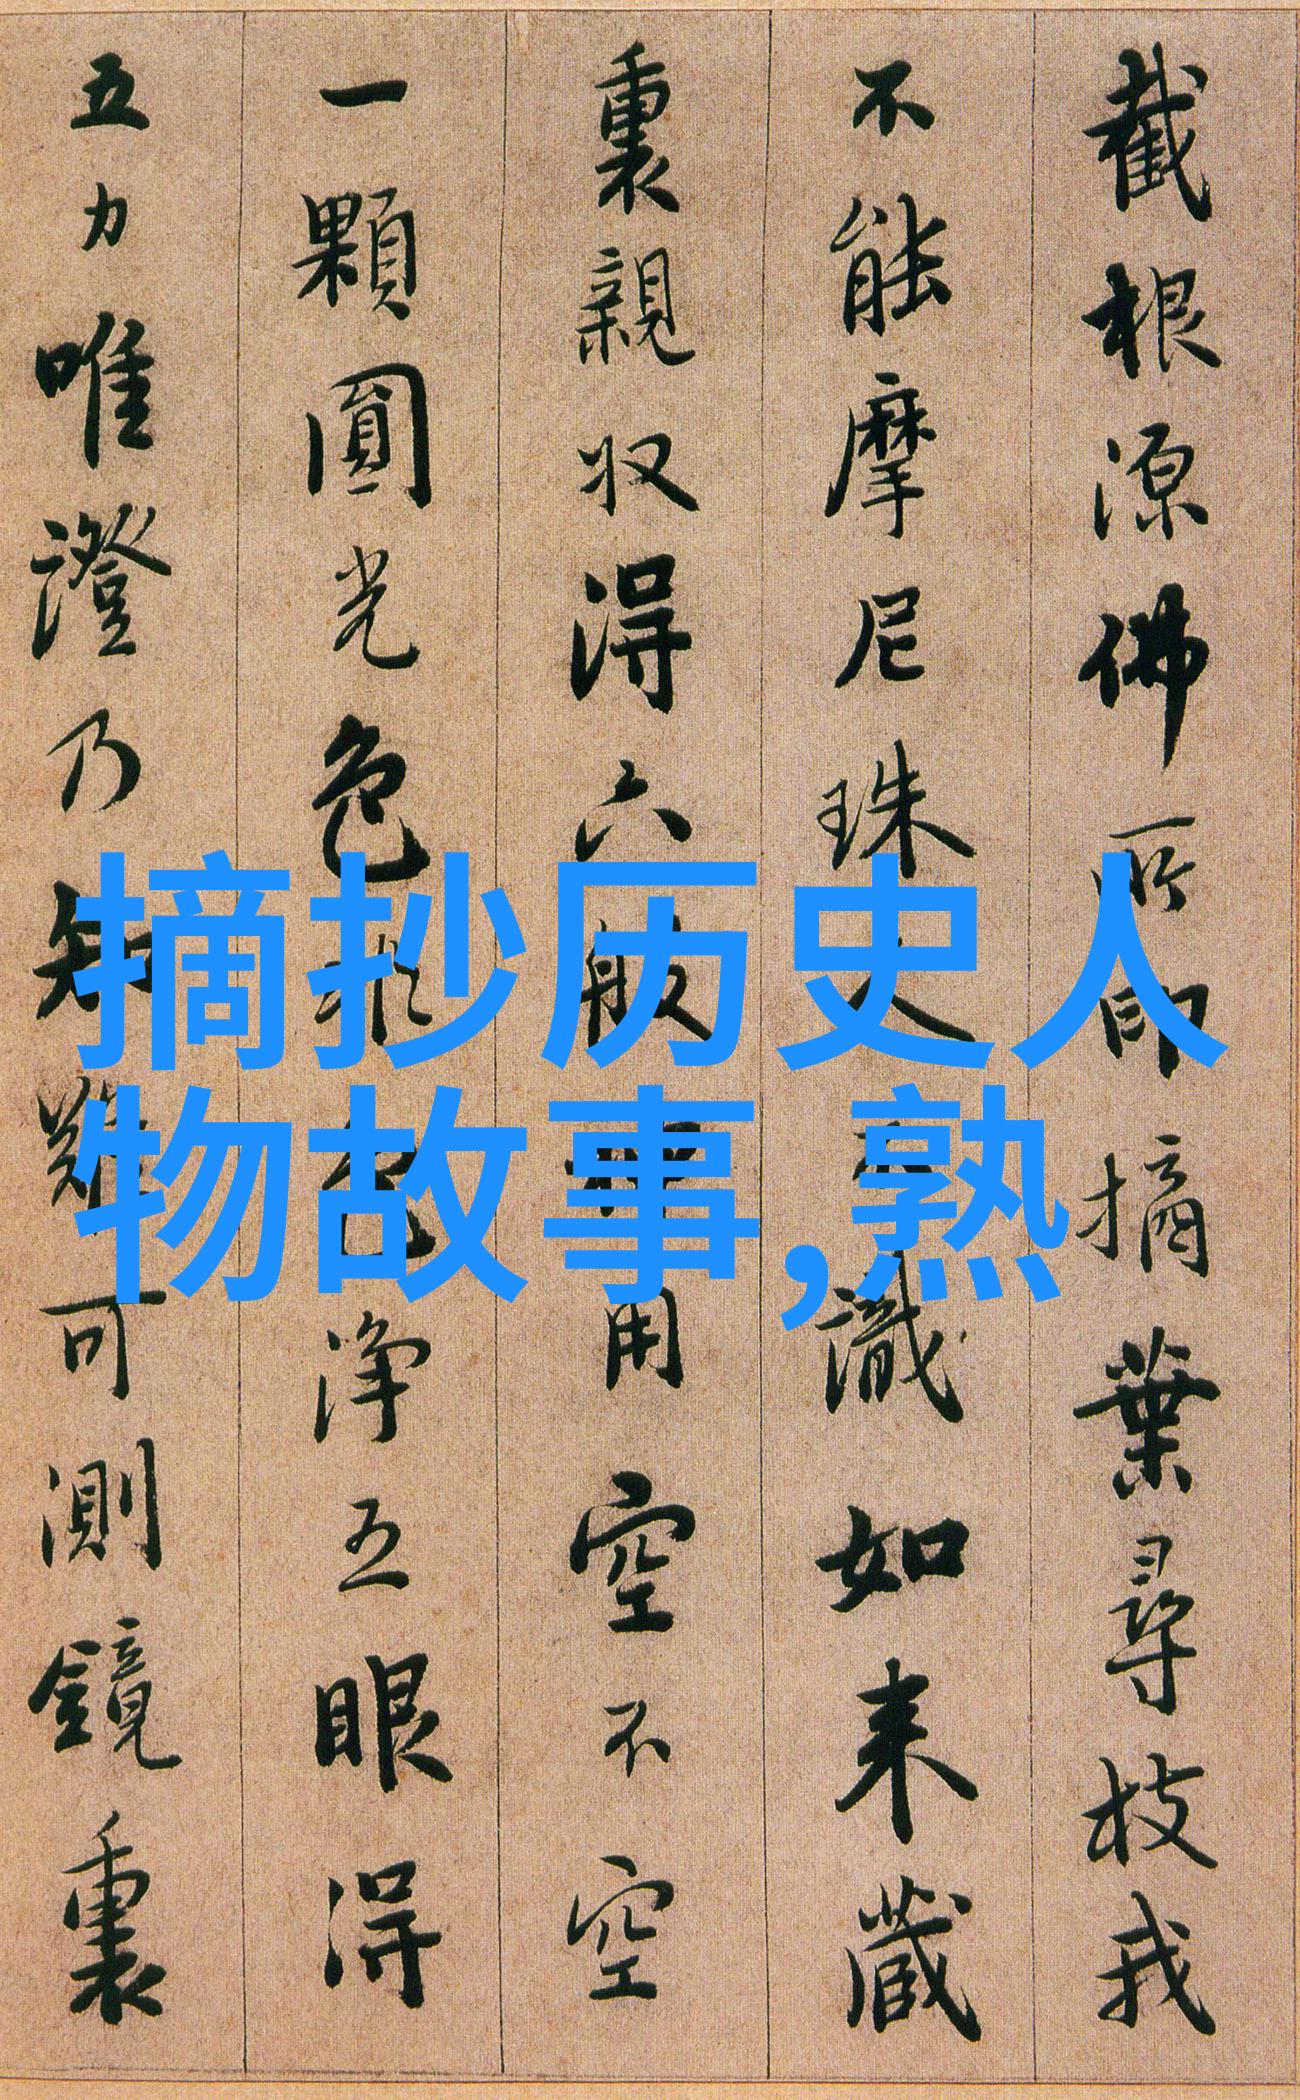 截根源佛所印摘葉尋枝我
不能摩尼珠人不識如来藏
裏親収得六般神用空不空
一顆圓光色非色淨五眼得
五力唯證乃知難可測鏡裏
摘抄历史人
物故事,熟